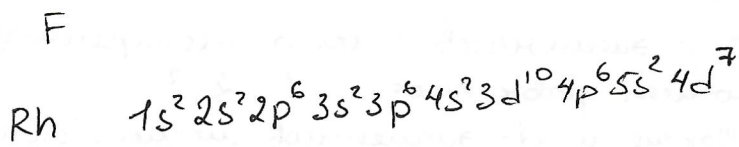 F
Rh 1s² 2s² 2p⁶ 3s² 3p⁶ 4s² 3d¹⁰ 4p⁶ 5s² 4d⁷